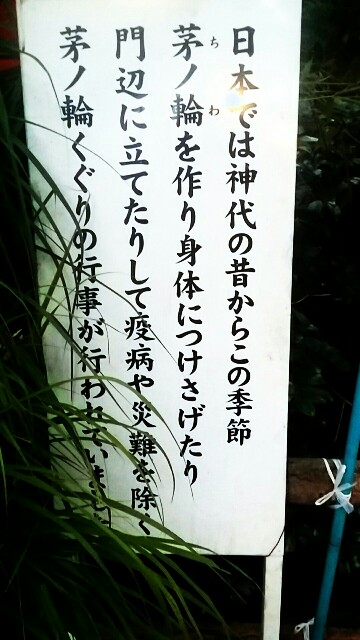 日本では神代の昔からこの季節
茅ノ輪を作り身体につけさげたり
門辺に立てたりして疫病や災難を除く
茅ノ輪くぐりの行事が行われていました